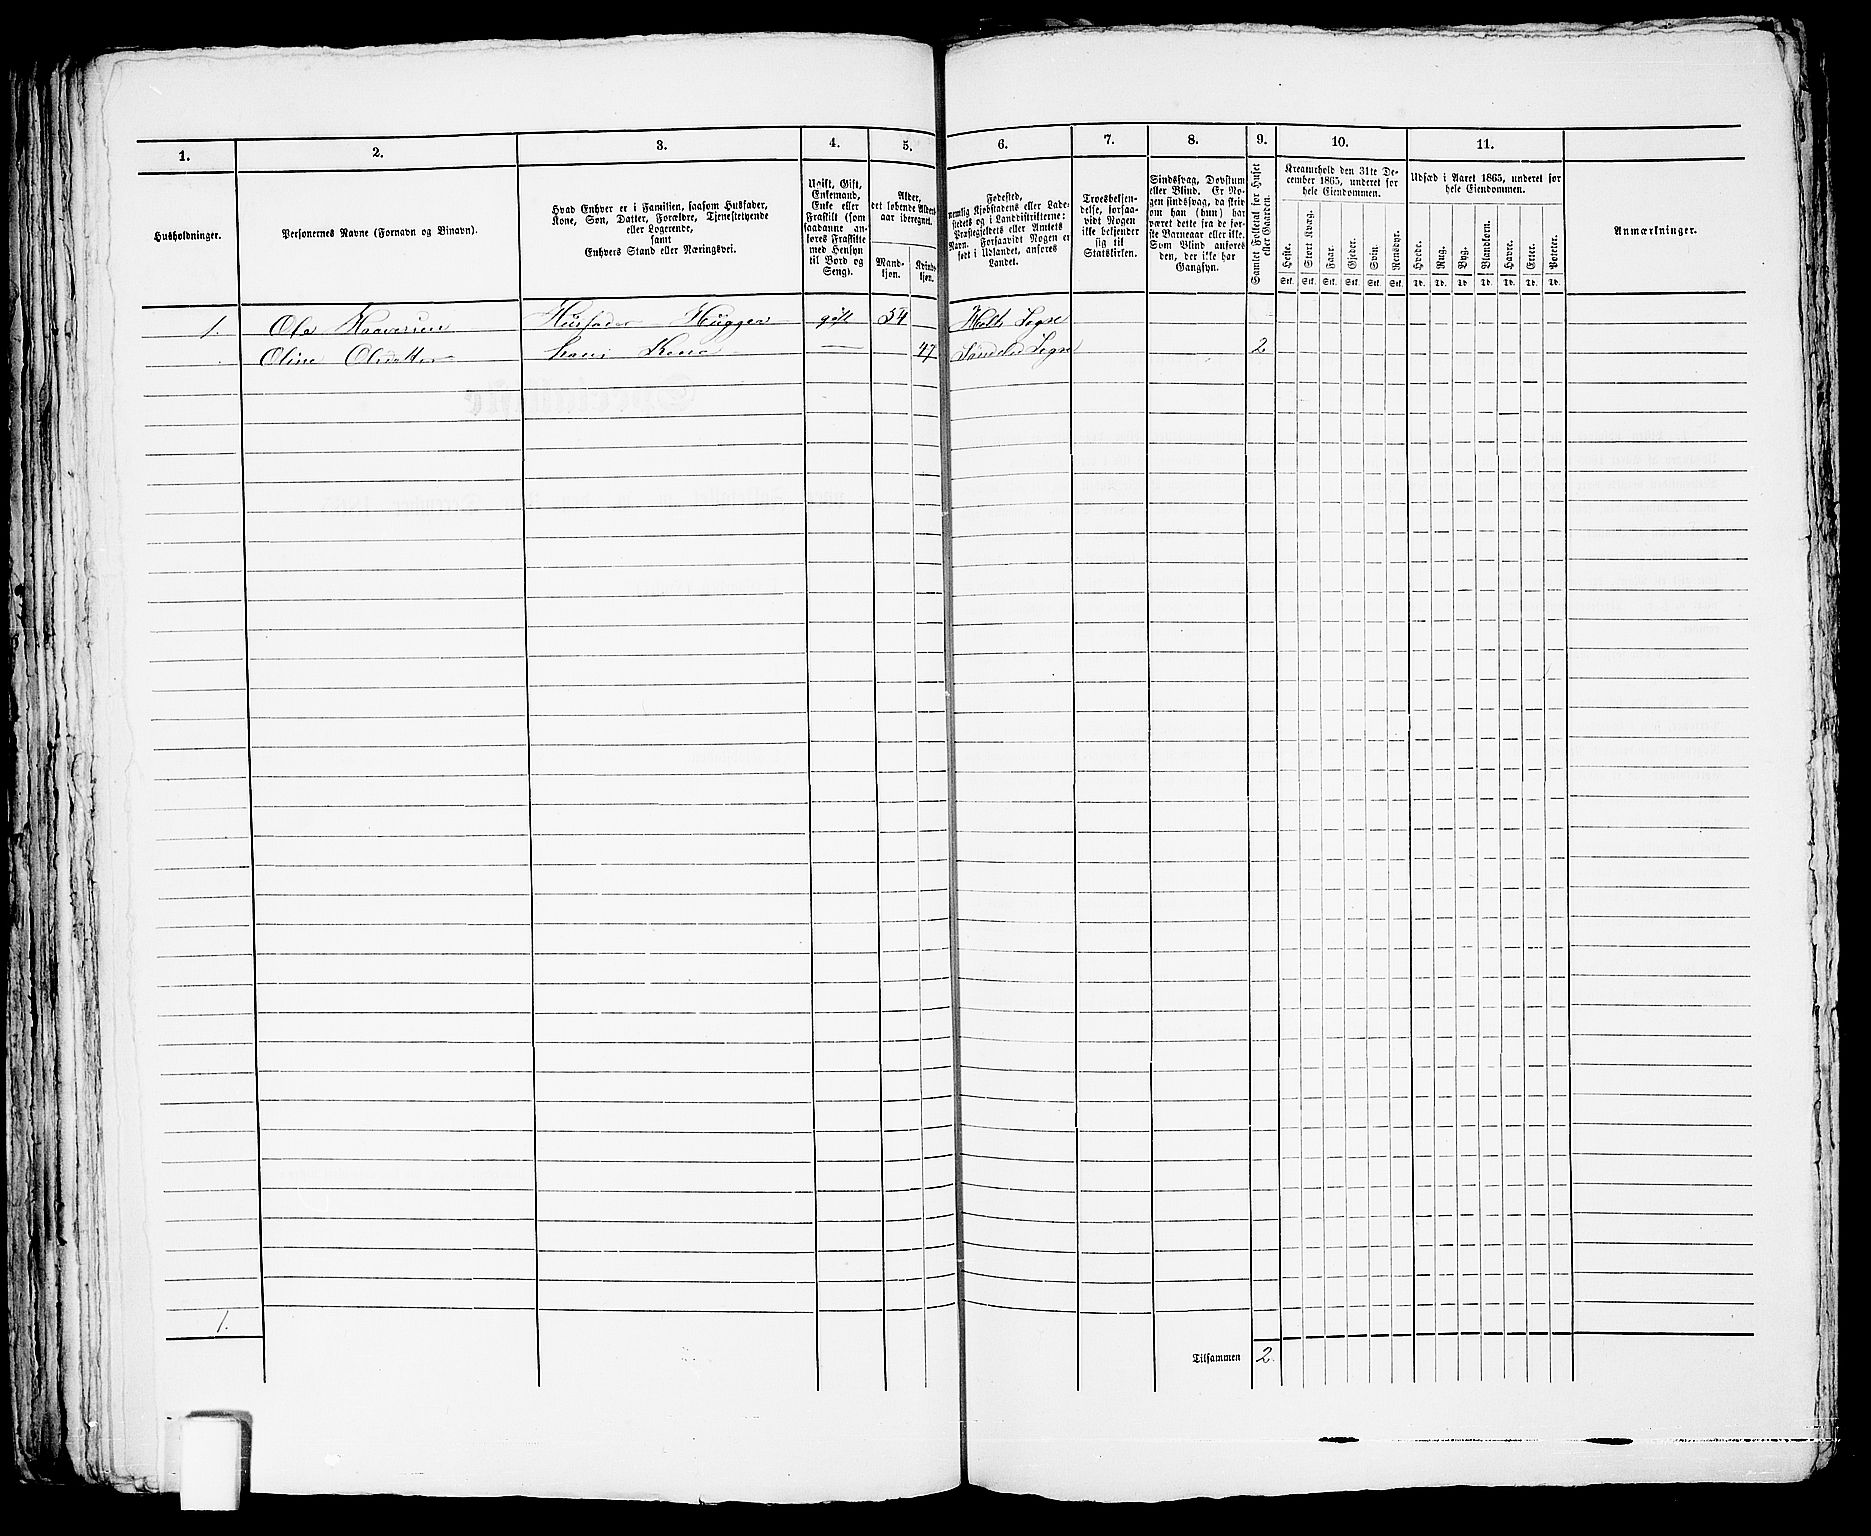 1. 2. 3. 4. 5. 6. 7. 8. 9. 10. 11.
Husholdninger.
Personernes Navne (Fornavn og Binavn).
Hvad Enhver er i Familien, saasom Husfader,
Kone, Søn, Datter, Forældre, Tjenestetyende
eller Logerende,
samt
Enhvers Stand eller Næringsvei.
Ugift, Gift,
Enkemand,
Enke eller
Fraskilt (som
saadanne an-
føres Fraskilte
med Hensyn
til Bord og
Seng).
Alder,
det løbende Alders-
aar iberegnet.
Mand-
kjøn.
Kvinde-
kjøn.
Fødested,
nemlig Kjøbstadens eller Lade-
stedets og i Landdistrikterne:
Præstegjeldets eller Amtets
Navn. Forsaavidt Nogen er
født i Udlandet, anføres
Landet.
Troesbekjen-
delse, forsaa-
vidt Nogen
ikke bekjender
sig til
Statskirken.
Sindssvag, Døvstum
eller Blind. Er No-
gen sindssvag, da skriv
om han (hun) har
været dette fra de før-
ste Barneaar eller ikke.
Som Blind anføres
den, der ikke har
Gangsyn.
Samlet Folketal for Huset
eller Gaarden.
Kreaturhold den 31te De-
cember 1865, underet for
hele Eiendommen.
Heste. Stort Kvæg. Faar. Gjeder. Svin. Rensdyr.
Stk. Stk. Stk. Stk. Stk. Stk.
Udsæd i Aaret 1865, underet for
hele Eiendommen.
Hvede. Rug. Byg. Blandkorn. Havre. Erter. Poteter.
Td. Td. Td. Td. Td. Td. Td.
Anmærkninger.
1. Ola Haaversen Husfader Hugger gift 54 Holts Sogn
Oline Olsdatter hans Kone — 47 Søndeled Sogn 2
1.
Tilsammen 2.